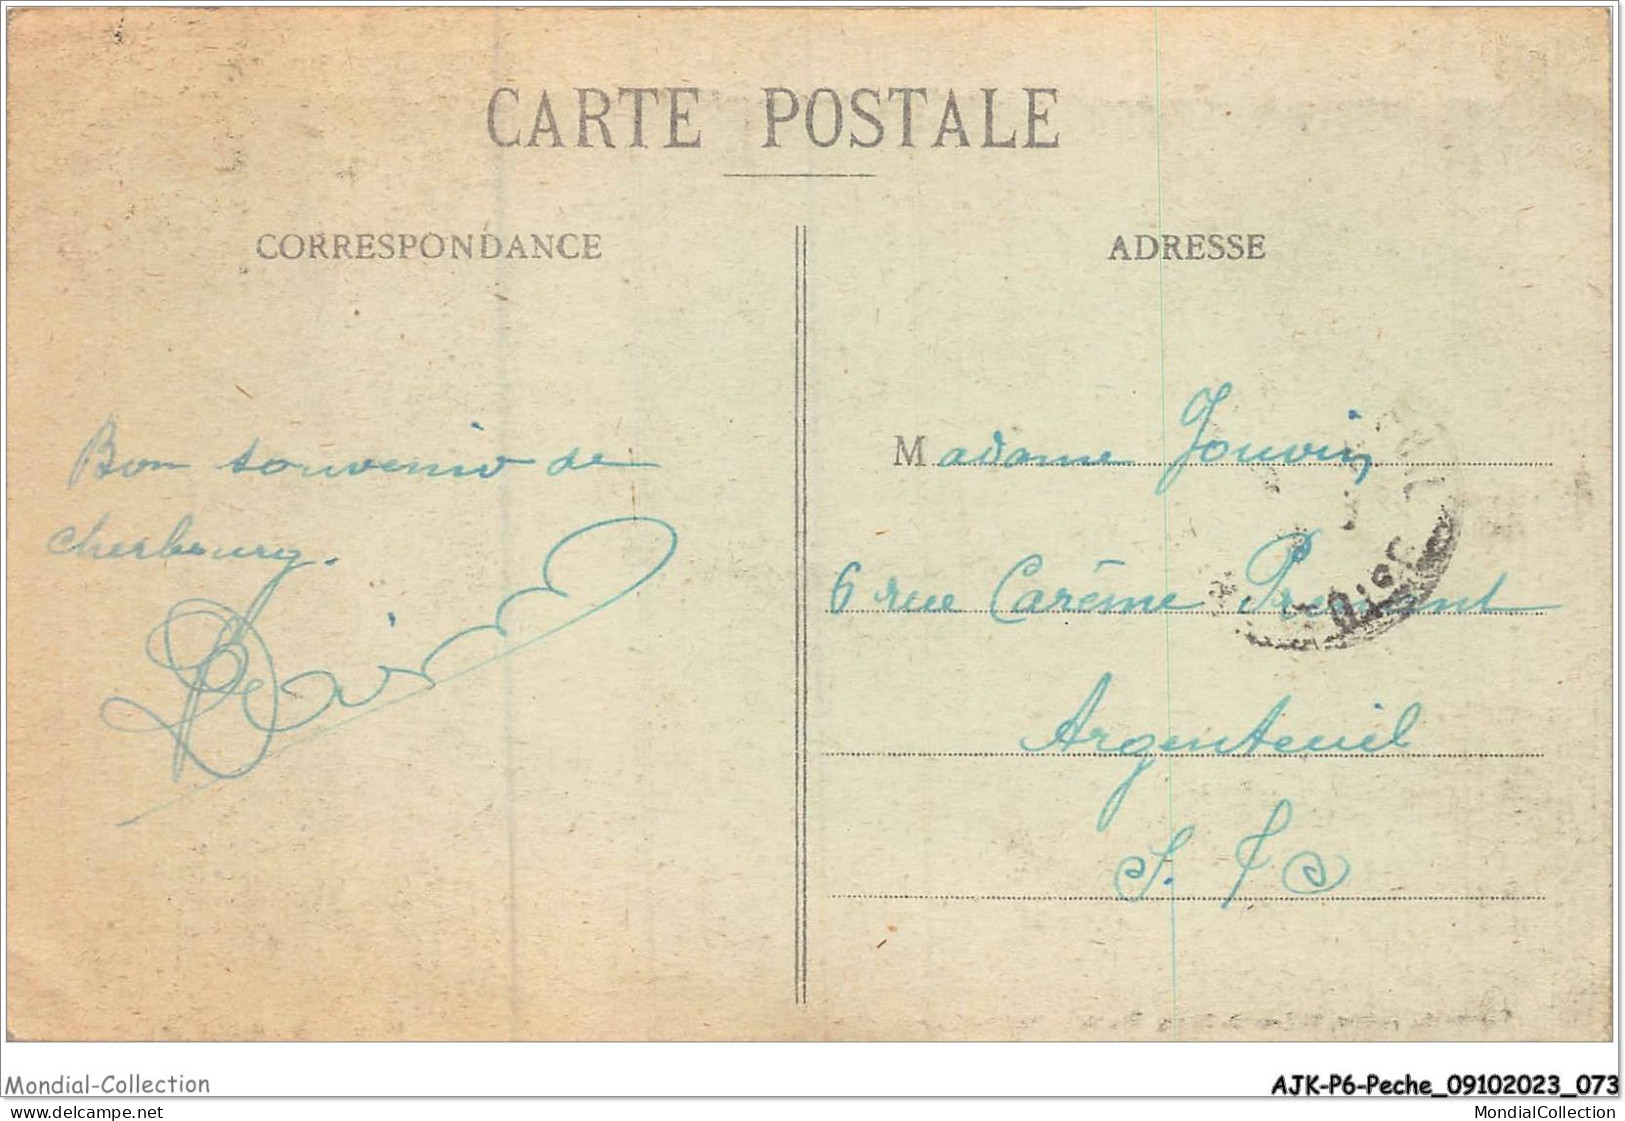 CARTE POSTALE
CORRESPONDANCE
ADRESSE
Bon souvenir de
Cherbourg.
Madame Jouvin
6 rue Carême Prenant
Argenteuil
S. & O
Mondial-Collection
AJK-P6-Peche_09102023_073
www.delcampe.net
MondialCollection